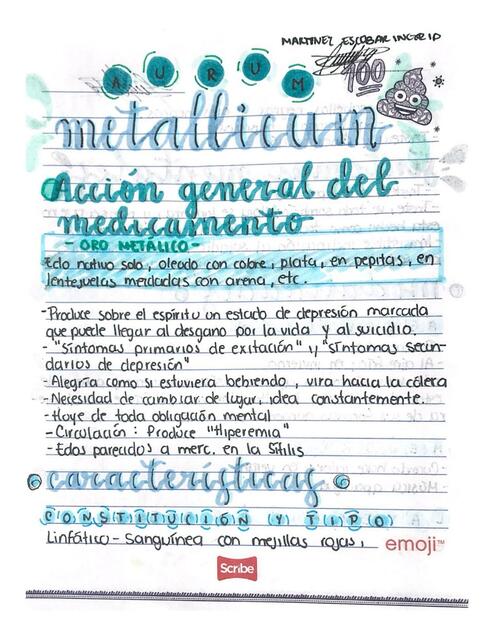 MARTINEZ ESCOBAR INGRID
AURUM
100
metallicum
Acción general del
medicamento
- ORO METÁLICO -
Edo nativo solo, aleado con cobre, plata, en pepitas, en
lentejuelas mezcladas con arena, etc.
- Produce sobre el espíritu un estado de depresión marcada
que puede llegar al desgano por la vida y al suicidio.
- "Síntomas primarios de exitación" y "síntomas secun-
darios de depresión"
- Alegría como si estuviera bebiendo, vira hacia la cólera
- Necesidad de cambiar de lugar, idea constantemente.
- Huye de toda obligación mental
- Circulación: Produce "Hiperemia"
- Edos parecidos a merc. en la Sífilis
características
CONSTITUCIÓN Y TIPO
Linfático - Sanguínea con mejillas rojas,
emoji™
Scribe